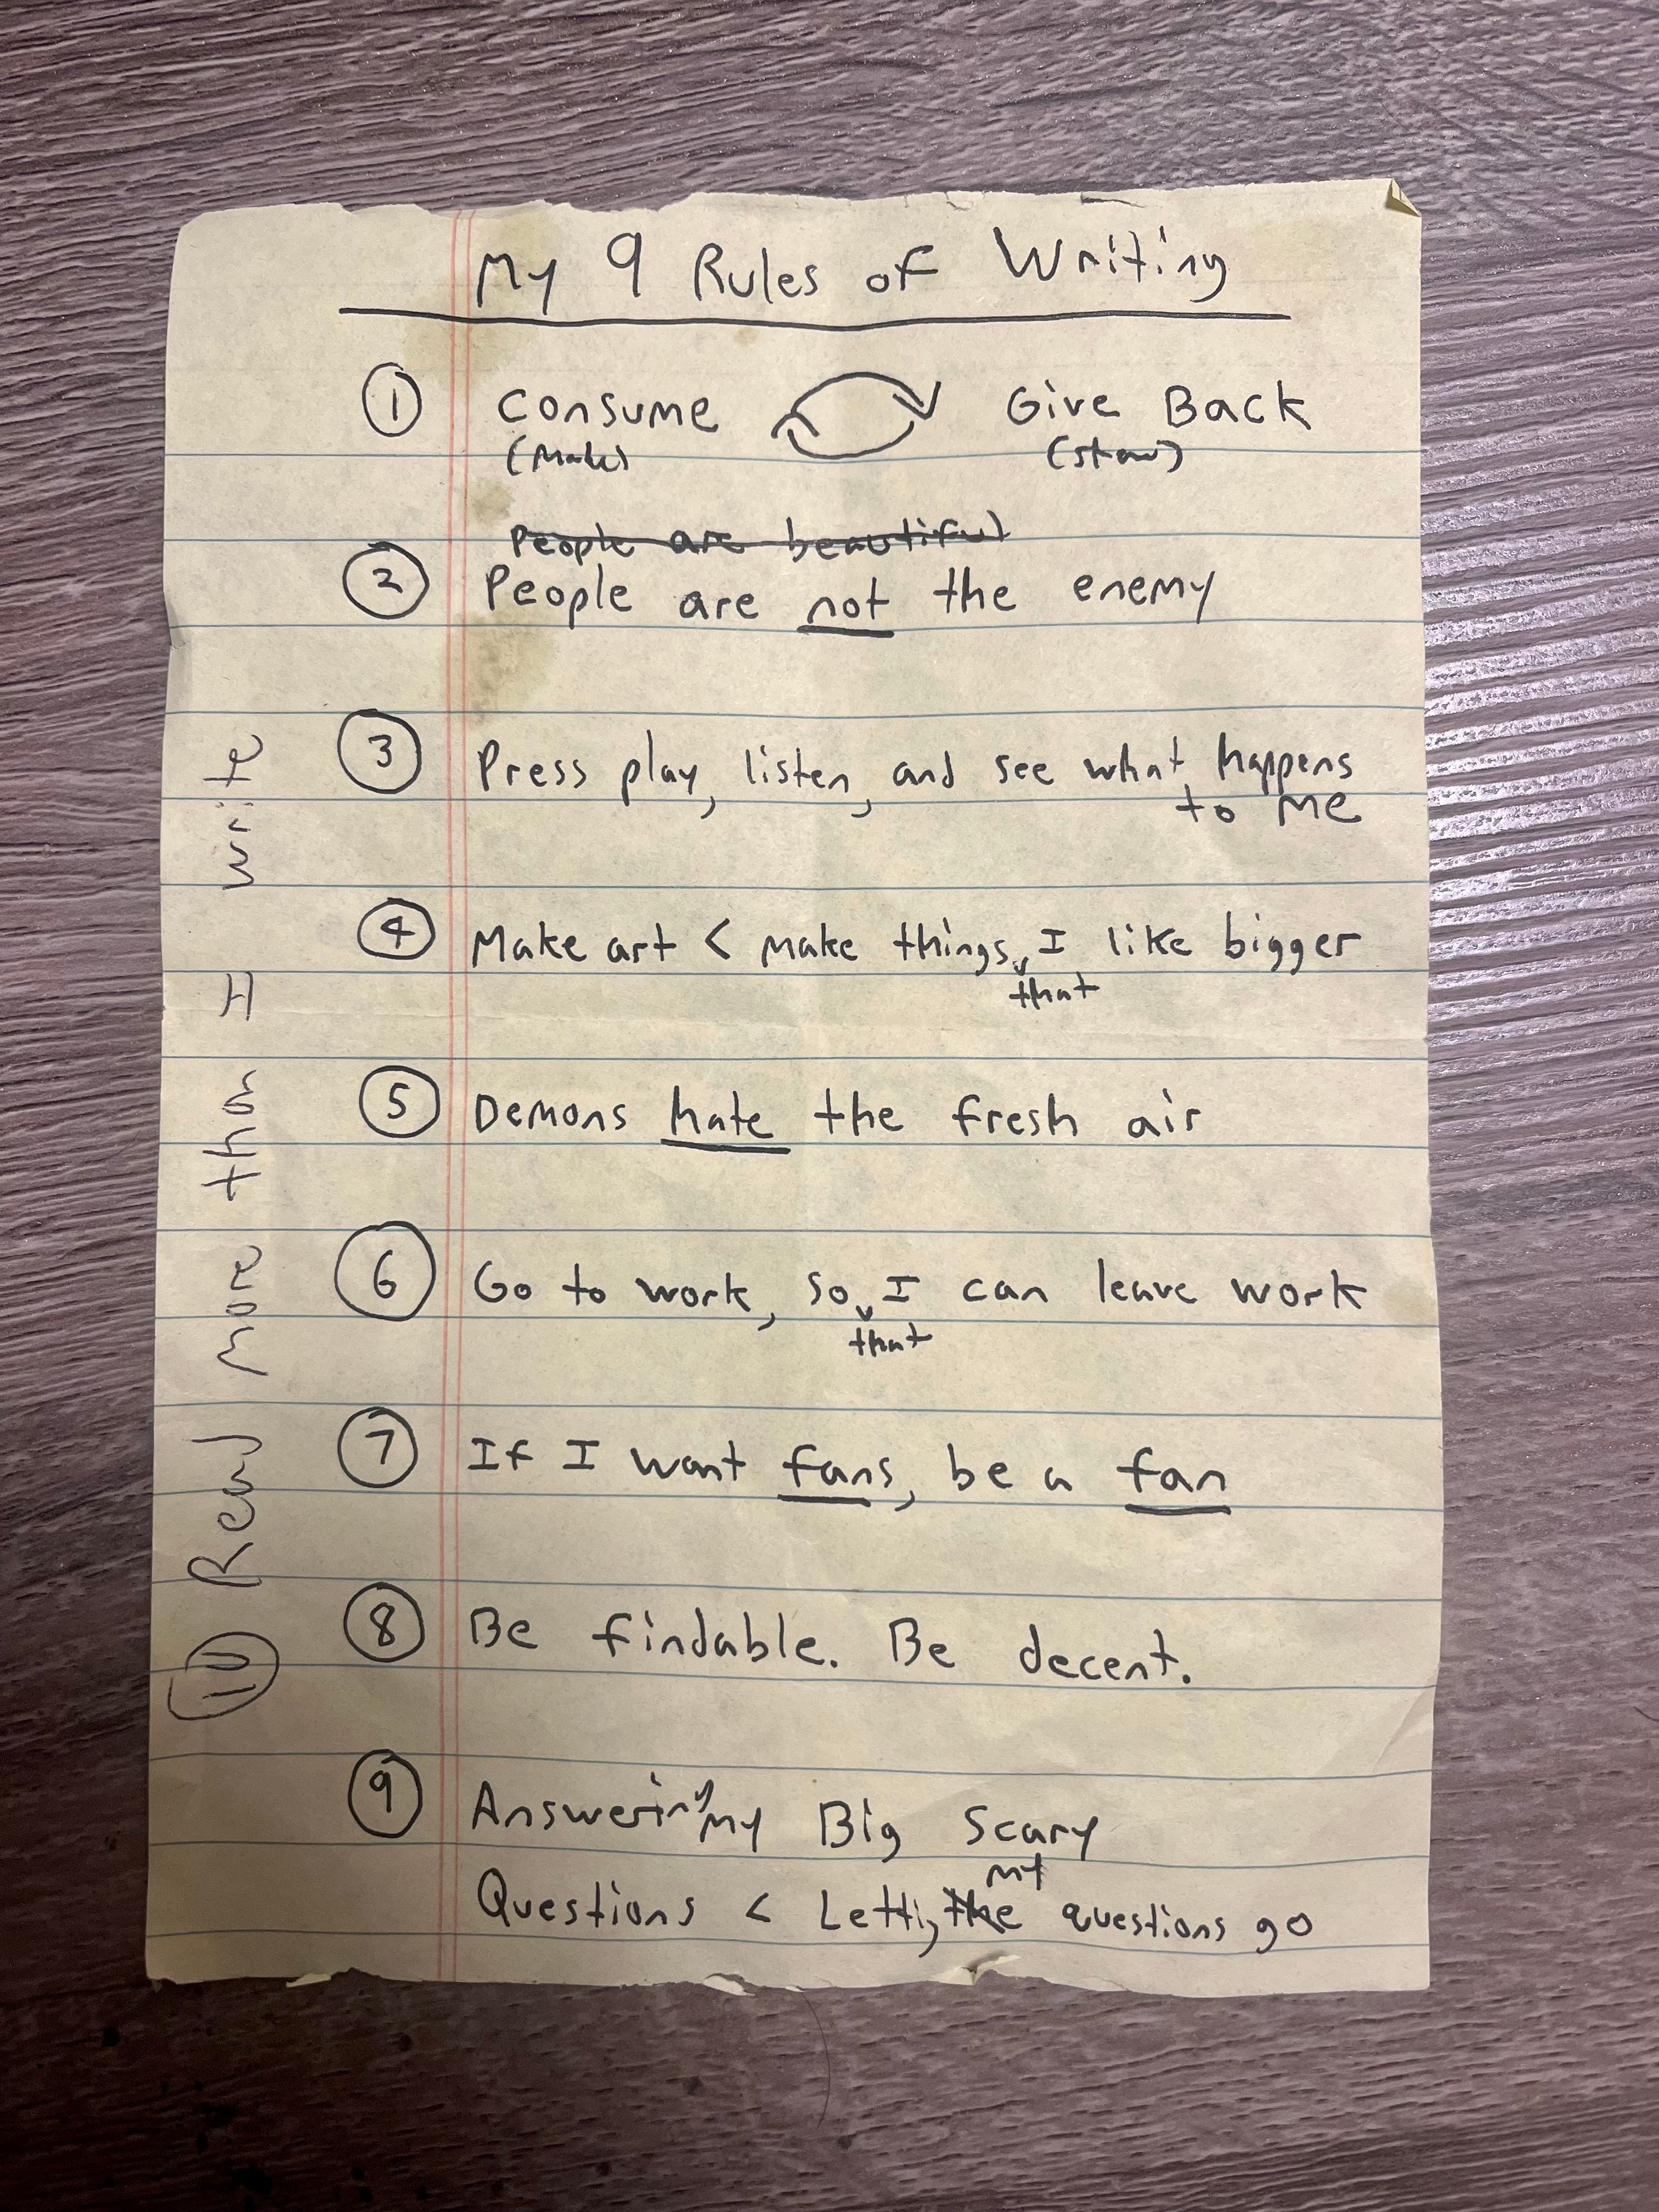 My 9 Rules of Writing
1 Consume Give Back
(Make)
People are beautiful
2 People are not the enemy
3 Press play, listen, and see what happens
to me
4 Make art < make things I like bigger
that
5 Demons hate the fresh air
6 Go to work, so I can leave work
that
7 If I want fans, be a fan
8 Be findable. Be decent.
9 Answering my Big Scary
my
Questions < Letting the questions go
10 Read more than I write